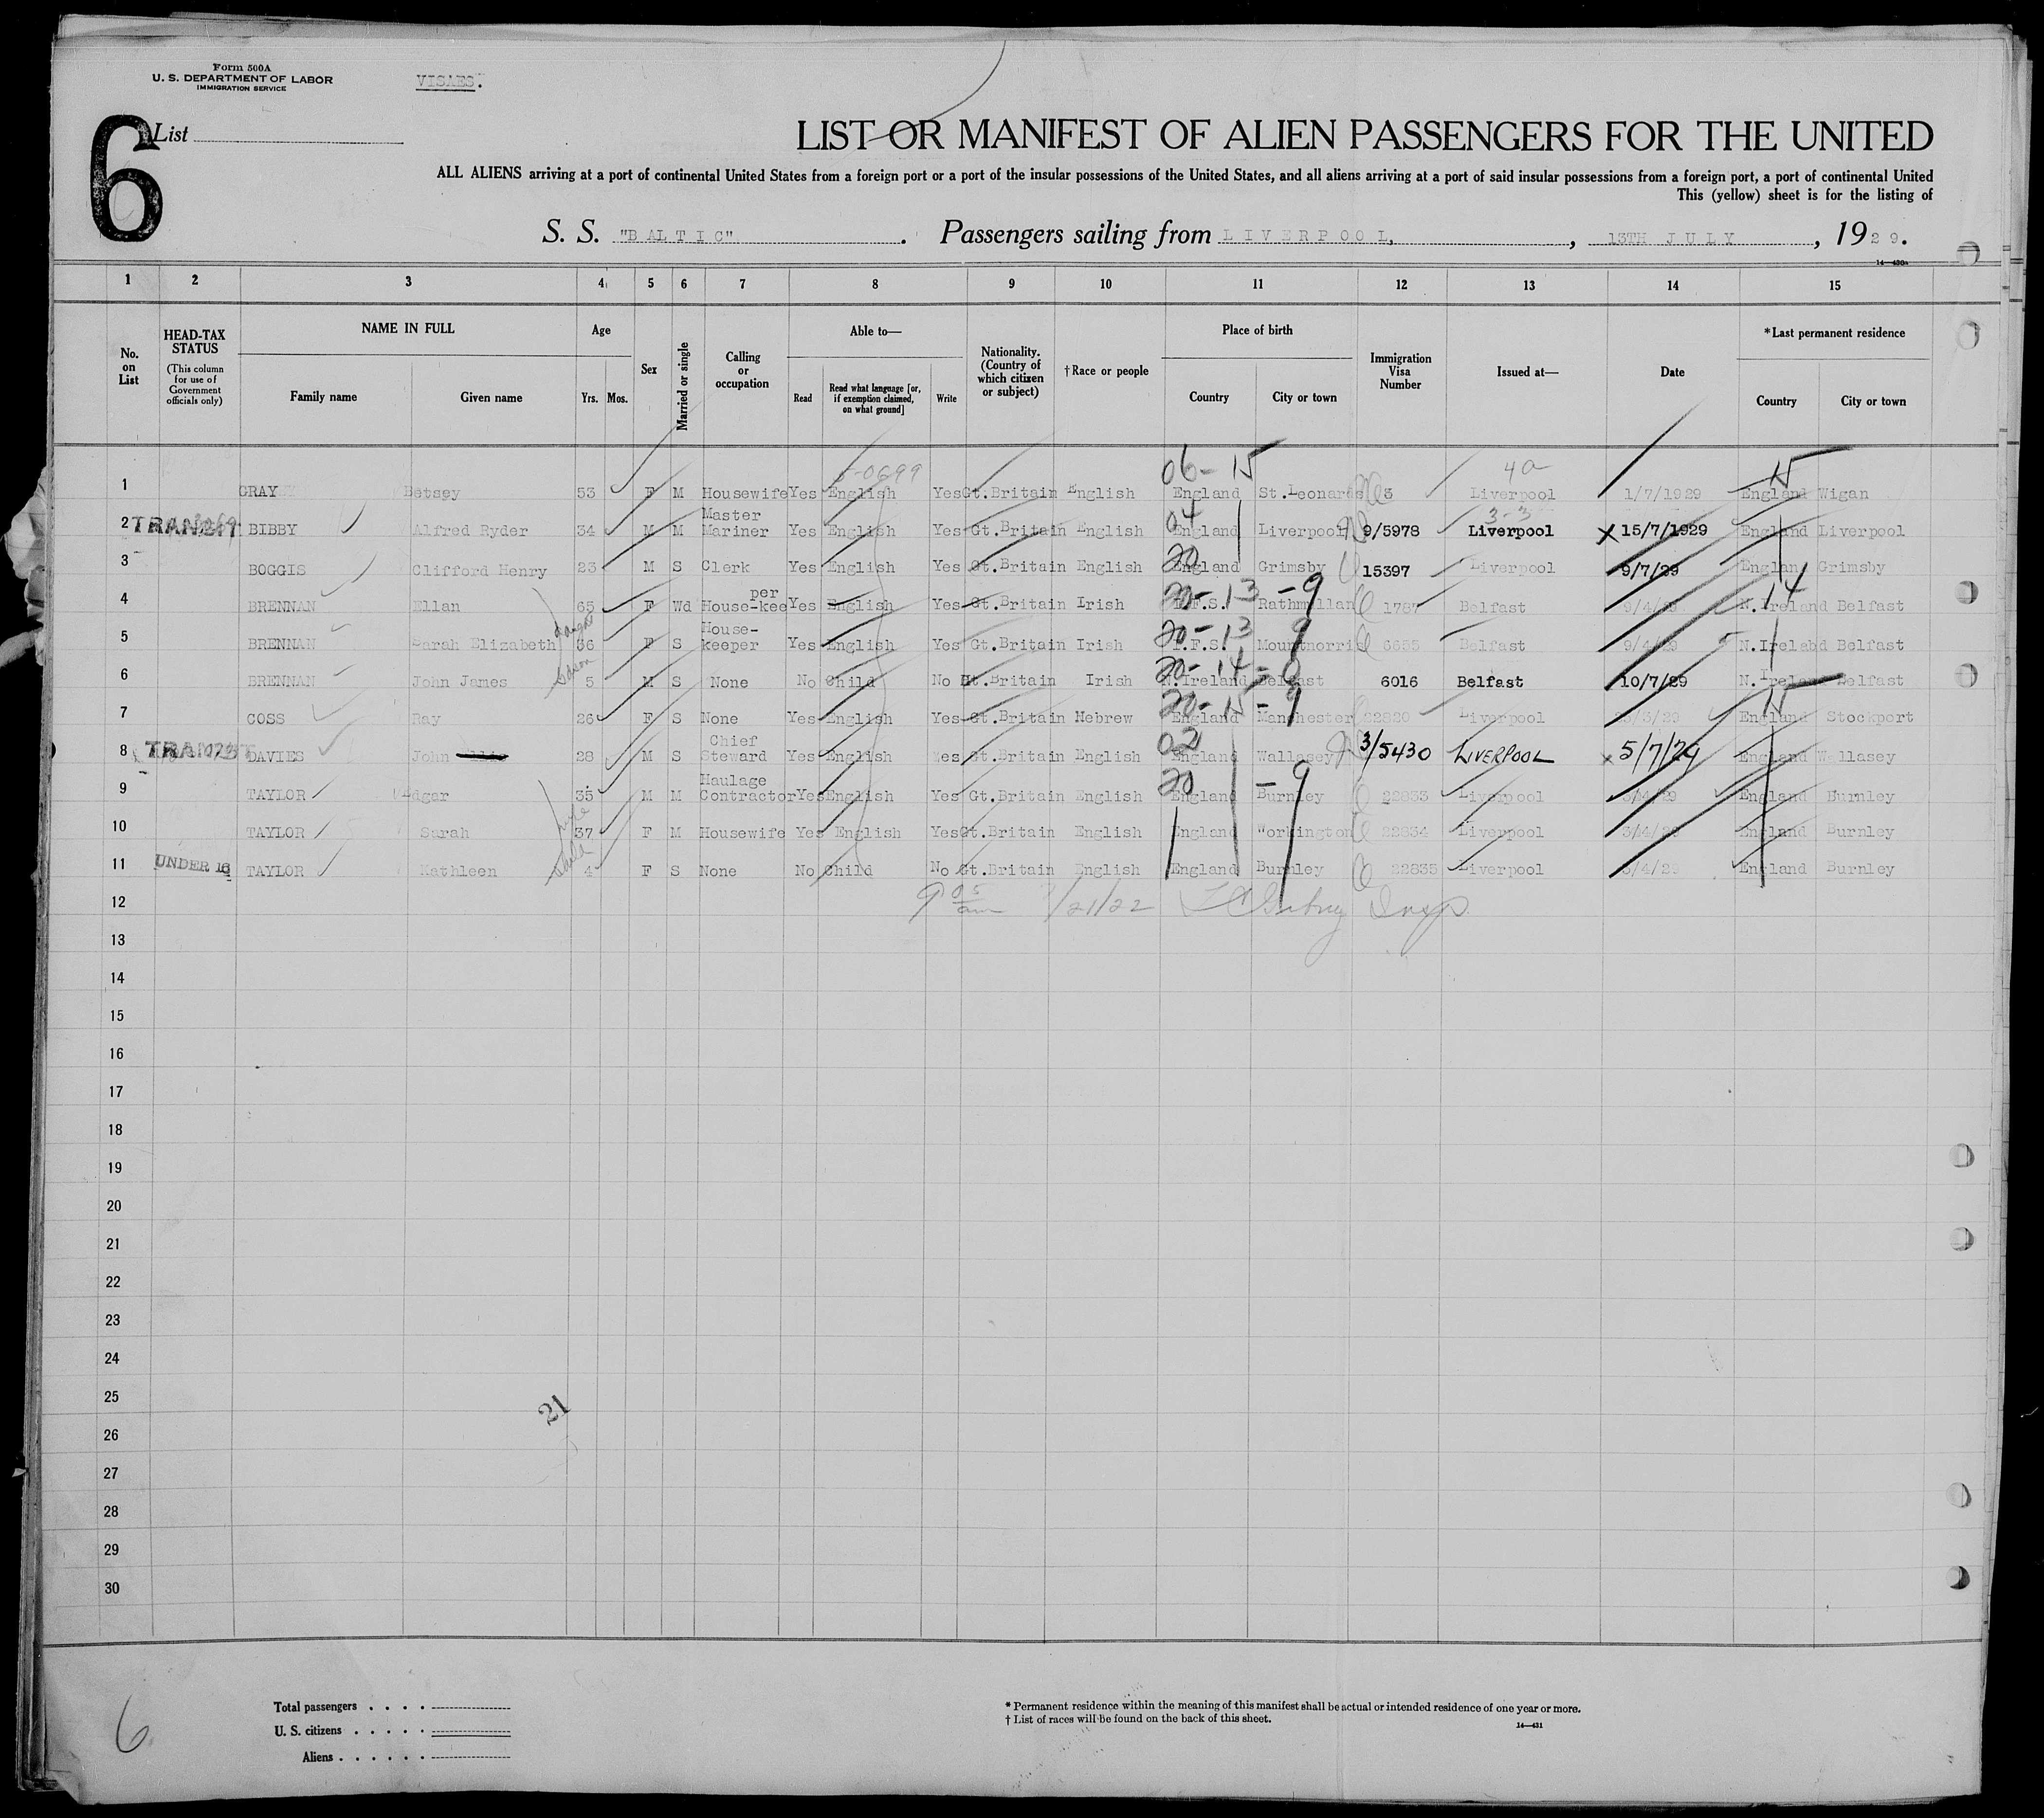 Form 500A
U. S. DEPARTMENT OF LABOR
IMMIGRATION SERVICE
VISAES.
6
List
LIST OR MANIFEST OF ALIEN PASSENGERS FOR THE UNITED
ALL ALIENS arriving at a port of continental United States from a foreign port or a port of the insular possessions of the United States, and all aliens arriving at a port of said insular possessions from a foreign port, a port of continental United
This (yellow) sheet is for the listing of
S. S. "BALTIC". Passengers sailing from LIVERPOOL, , 13TH JULY , 1929.
14—430a
1 2 3 4 5 6 7 8 9 10 11 12 13 14 15
No. on List
HEAD-TAX STATUS
(This column for use of Government officials only)
NAME IN FULL
Family name Given name
Age
Yrs. Mos.
Sex
Married or single
Calling or occupation
Able to—
Read Read what language [or, if exemption claimed, on what ground] Write
Nationality. (Country of which citizen or subject)
†Race or people
Place of birth
Country City or town
Immigration Visa Number
Issued at—
Date
*Last permanent residence
Country City or town
5-0699 06-15 4a 15
1 GRAY Betsey 53 F M Housewife Yes English Yes Gt.Britain English England St.Leonards 3 Liverpool 1/7/1929 England Wigan
04 3-3
2 TRANSIT BIBBY Alfred Ryder 34 M M Master Mariner Yes English Yes Gt.Britain English England Liverpool 9/5978 Liverpool X 15/7/1929 England Liverpool
20
3 BOGGIS Clifford Henry 23 M S Clerk Yes English Yes Gt.Britain English England Grimsby 15397 Liverpool 9/7/29 Englan Grimsby
20-13 -9 14
4 BRENNAN Ellan 65 F Wd House-keeper Yes English Yes Gt.Britain Irish I.F.S. Rathmullan 1787 Belfast 9/4/29 N.Ireland Belfast
20-13 9
5 BRENNAN Sarah Elizabeth 36 F S House-keeper Yes English Yes Gt.Britain Irish I.F.S. Mountnorris 6655 Belfast 9/4/29 N.Irelabd Belfast
20-14-0
6 BRENNAN John James 5 M S None No Child No Gt.Britain Irish N.Ireland Belfast 6016 Belfast 10/7/29 N.Ireland Belfast
20-15-9 15
7 COSS Ray 26 F S None Yes English Yes Gt.Britain Hebrew England Manchester 22820 Liverpool /3/29 England Stockport
02
8 TRANSIT DAVIES John 28 M S Chief Steward Yes English Yes Gt.Britain English England Wallasey 3/5430 LIVERPOOL x 5/7/29 England Wallasey
20 -9
9 TAYLOR Edgar 35 M M Haulage Contractor Yes English Yes Gt.Britain English England Burnley 22833 Liverpool 3/4/29 England Burnley
wife
10 TAYLOR Sarah 37 F M Housewife Yes English Yes Gt.Britain English England Workington 22834 Liverpool 3/4/29 England Burnley
child
11 UNDER 16 TAYLOR Kathleen 4 F S None No Child No Gt.Britain English England Burnley 22835 Liverpool 3/4/29 England Burnley
12 9 05 am /21/22 Insp
13
14
15
16
17
18
19
20
21
22
23
24
25
21
26
27
28
29
30
6
Total passengers . . . .
U. S. citizens . . . . .
Aliens . . . . . .
* Permanent residence within the meaning of this manifest shall be actual or intended residence of one year or more.
† List of races will be found on the back of this sheet.
14—431